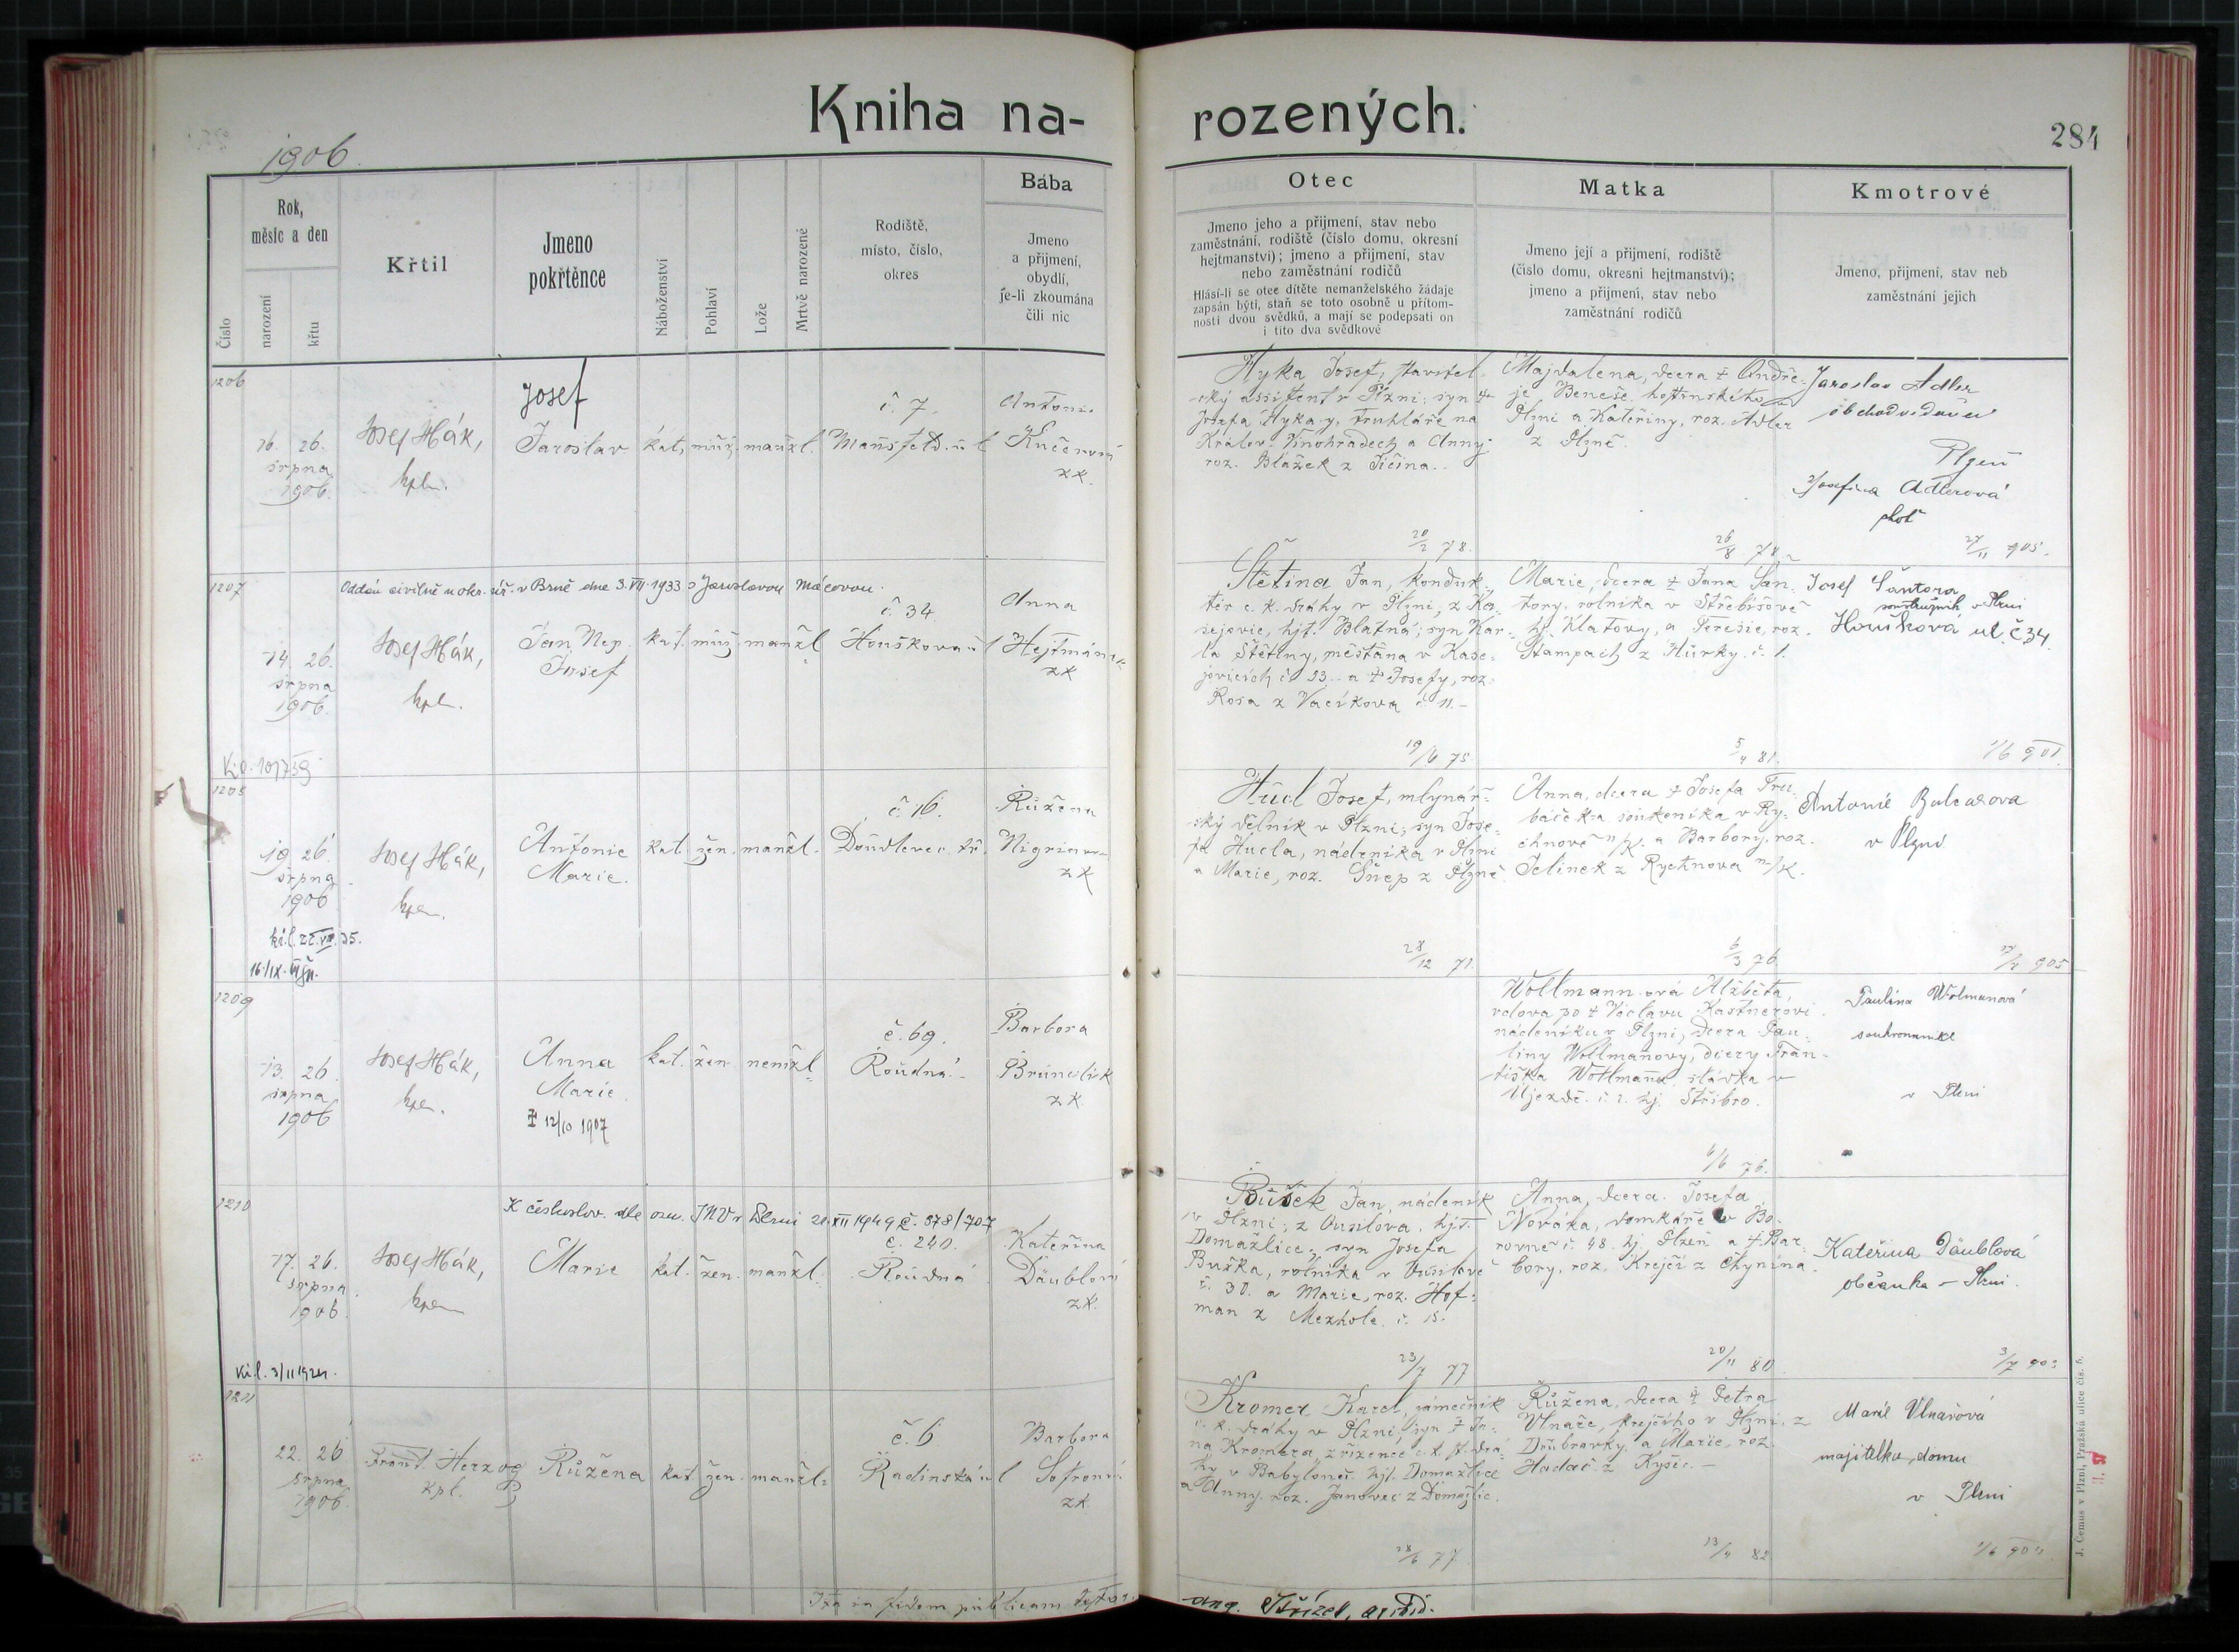 Kniha na-
rozených.
284
1906.
Číslo
Rok,
měsíc a den
narození
křtu
Křtil
Jmeno
pokřtěnce
Náboženství
Pohlaví
Lože
Mrtvě narozené
Rodiště,
místo, číslo,
okres
Bába
Jmeno
a přijmení,
obydlí,
je-li zkoumána
čili nic
Otec
Jmeno jeho a přijmení, stav nebo
zaměstnání, rodiště (číslo domu, okresní
hejtmanství); jmeno a přijmení, stav
nebo zaměstnání rodičů
Hlásí-li se otec dítěte nemanželského žádaje
zapsán býti, staň se toto osobně u přítom-
nosti dvou svědků, a mají se podepsati on
i tito dva svědkové
Matka
Jmeno její a přijmení, rodiště
(číslo domu, okresní hejtmanství);
jmeno a přijmení, stav nebo
zaměstnání rodičů
Kmotrové
Jmeno, přijmení, stav neb
zaměstnání jejich
1206
16. 26.
srpna
1906.
Josef Hák,
kpln.
Josef
Jaroslav
kat. muž. manžl.
č. 7.
Mansfeld. ul
Antonie
Kučerová
zk.
Hyka Josef, stavitel-
ský assistent v Plzni; syn
Josefa Hyka-y, truhláře na
Králov. Vinohradech a Anny
roz. Blážek z Jičína.
20/2 78.
Majdalena, dcera † Ondře-
je Beneše, hostinského v
Plzni a Kateřiny, roz. Adler
z Plzně.
26/8 78.
Jaroslav Adler
obchodvedoucí
Plzeň
Josefina Adlerová
choť
27/11 905.
1207
Oddán civilně u okr. úř. v Brně dne 3.VII.1933 s Jaroslavou Mácovou.
14. 26.
srpna
1906.
Josef Hák,
kpl.
Jan Nep.
Josef
kat. muž. manžl
č. 34
Houškova ul
Anna
Hejtmánek
zk
Štětina Jan, konduk-
tér c. k. dráhy v Plzni, z Ka-
sejovic, hjt. Blatná; syn Kar-
la Štětiny, měštana v Kase-
jovicích č. 23. a † Josefy, roz.
Rosa z Vacíkova č. 11.-
19/6 75
Marie, dcera † Jana Šan-
tory, rolníka v Střebišově
hj. Klatovy, a Teresie, roz.
Štampach z Hůrky č. 1.
5/4 81.
Josef Šantora
soustružník v Plzni
Houšková ul. č 34.
1/6 901.
1208
19. 26.
srpna
1906
Josef Hák,
kpln.
Antonie
Marie.
kat. žen. manžl.
č. 16.
Doudlevec. tř.
Růžena
zk
Hucl Josef, mlynář-
ský dělník v Plzni; syn Jose-
fa Hucla, nádeníka v Plzni
a Marie, roz. Šnep z Plzně.
28/12 71.
Anna, dcera † Josefa Tru-
báčka soukeníka v Ry-
chnově n/K. a Barbory, roz.
Jelínek z Rychnova n/K.
6/3 76
v Plzni
1209
13. 26.
srpna
1906
Josef Hák,
kpln.
Anna
Marie.
‡ 12/10 1907
kat. žen. nemžl
č. 69.
Roudná
Barbora
Brunclík
zk.
Wollmann-ová Alžběta,
vdova po † Václavu Kastnerovi
nádeníku v Plzni, dcera Pau-
liny Wollmanovy, dcery Fran-
tiška Wollmana, slávka v
Újezdě č. 2. hj. Stříbro.
6/6 76.
Paulina Wolmanová
v Plzni
1210
17. 26.
srpna
1906.
Josef Hák,
kpln
Marie
kat. žen. manžl.
č. 240.
Roudná
Kateřina
Däublová
zk.
Bušek Jan, nádeník
v Plzni; z Ouslova, hjt.
Domažlice; syn Josefa
Buška, rolníka v Ouslově
č. 30. a Marie, roz. Hof-
man z Mezhole č. 15.
23/7 77
Anna, dcera Josefa
Nováka, domkáře v Bo-
rovně č. 48. hj. Plzeň a † Bar-
bory, roz. Krejčí z Chynína
20/11 80
Kateřina Däublová
občanka - Plzni.
3/7 903
kř.l. 3/11 1924.
1211
22. 26
srpna
1906.
Frant Herzog
kpl.
Růžena
kat. žen. manžl.
č. 6
Radinská ul
Barbora
zk.
Kromer Karel, zámečník
c. k. dráhy v Plzni; syn † Ja-
na Kromera, zřízence c. k. st. drá-
hy v Babyloně, hjt. Domažlice
a Anny, roz. Janovec z Domažlic.
28/6 77.
Růžena, dcera † Petra
Vlnaře, krejčího v Plzni, z
Doubravky a Marie, roz.
Hadač z Kyšic.-
13/4 82
Marie Vlnařová
majitelka domu
v Plzni
1/6 904
Ita in fidem publicam testor:
J. Čemus v Plzni, Pražská ulice čís. 6.